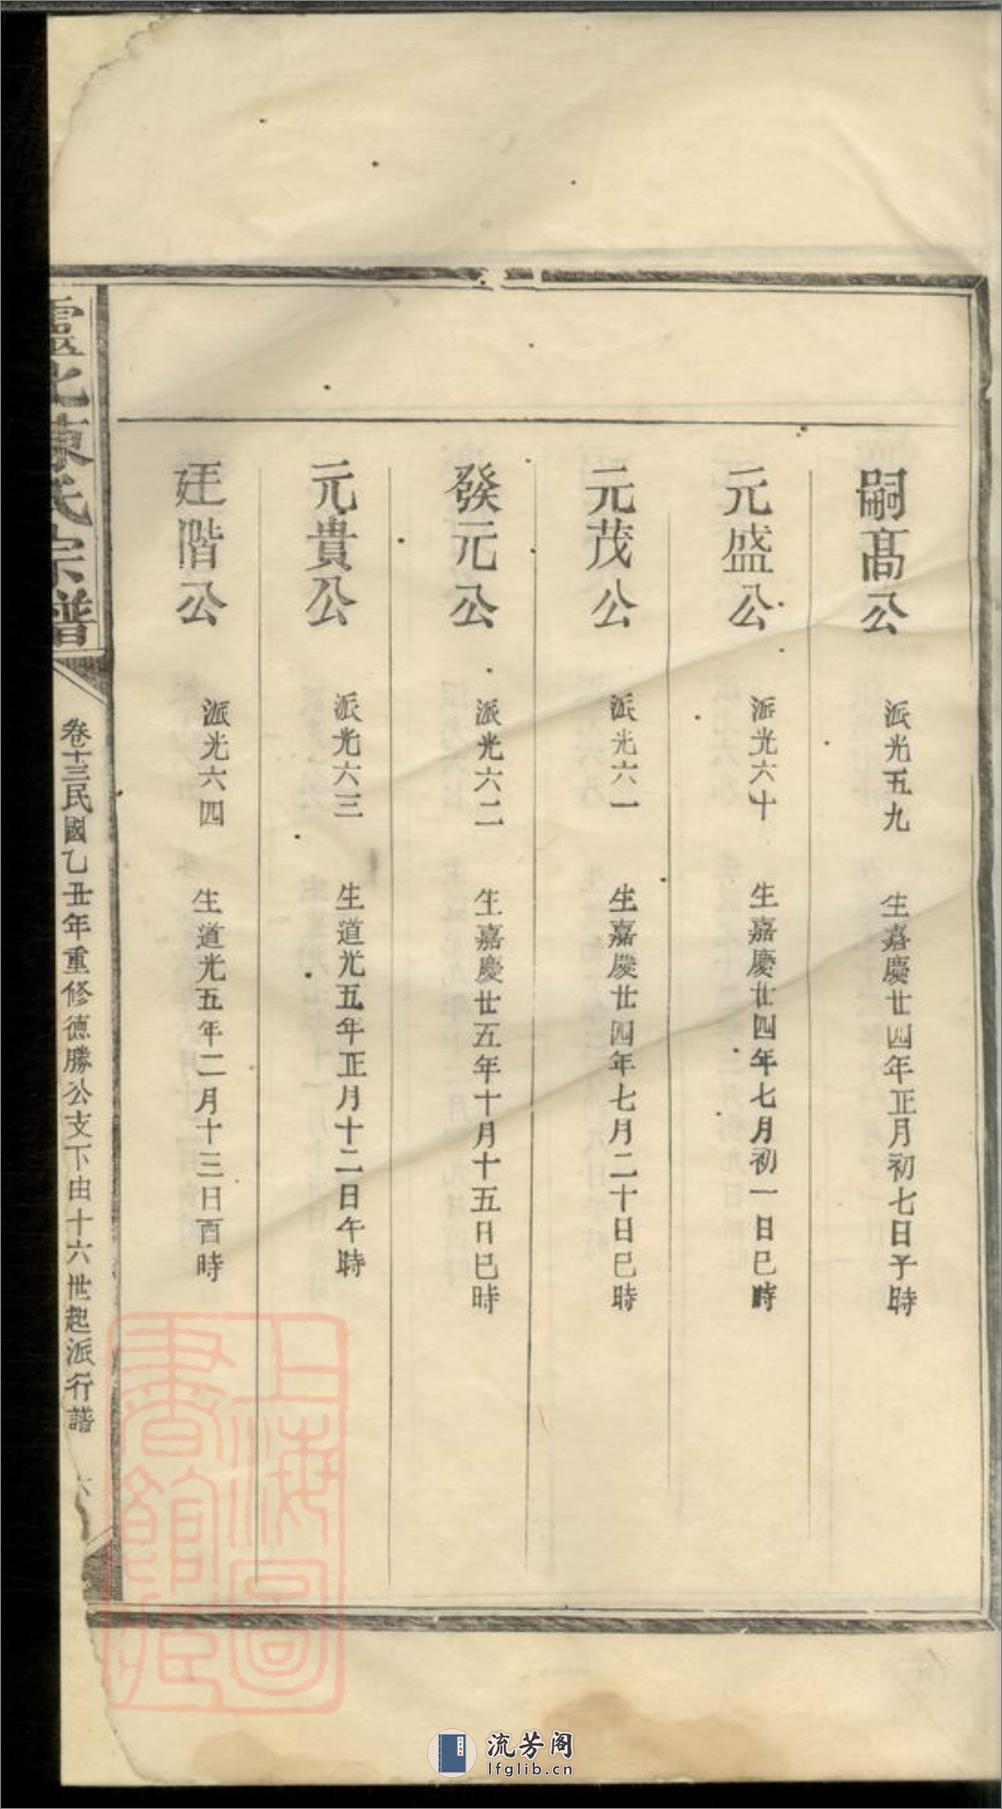 嗣髙公　派光五九　生嘉慶廿四年正月初七日子時
元盛公　派光六十　生嘉慶廿四年七月初一日巳時
元茂公　派光六一　生嘉慶廿四年七月二十日巳時
發元公　派光六二　生嘉慶廿五年十月十五日巳時
元貴公　派光六三　生道光五年正月十二日午時
廷階公　派光六四　生道光五年二月十三日酉時
北陳氏宗譜
卷十三民國乙丑年重修德勝公支下由十六世起派行譜　六
上海圖
書館藏
流芳阁
lfglib.cn